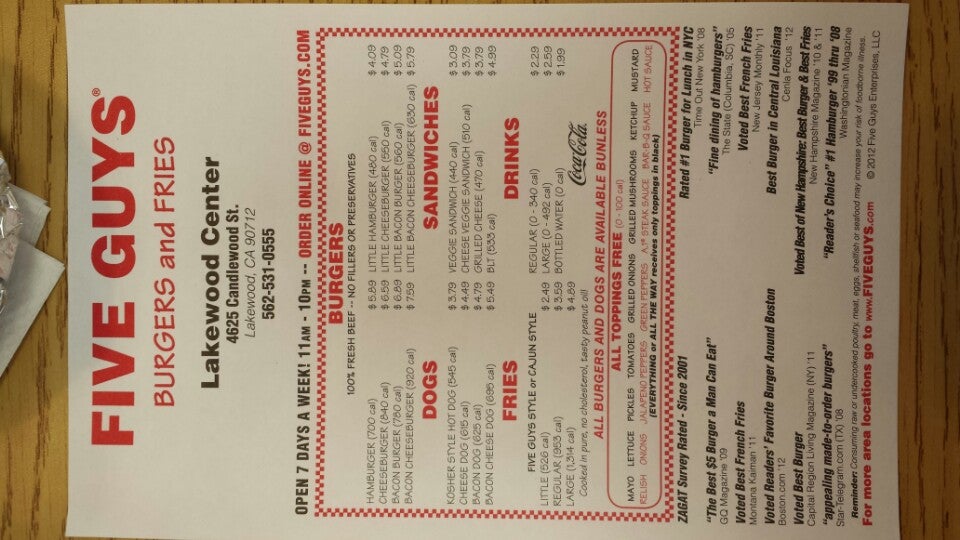 FIVE GUYS®
BURGERS and FRIES
Lakewood Center
4625 Candlewood St.
Lakewood, CA 90712
562-531-0555
OPEN 7 DAYS A WEEK! 11AM - 10PM -- ORDER ONLINE @ FIVEGUYS.COM
BURGERS
100% FRESH BEEF -- NO FILLERS OR PRESERVATIVES
HAMBURGER (700 cal) $ 5.89 LITTLE HAMBURGER (480 cal) $ 4.09
CHEESEBURGER (840 cal) $ 6.59 LITTLE CHEESEBURGER (550 cal) $ 4.79
BACON BURGER (780 cal) $ 6.89 LITTLE BACON BURGER (560 cal) $ 5.09
BACON CHEESEBURGER (920 cal) $ 7.59 LITTLE BACON CHEESEBURGER (630 cal) $ 5.79
DOGS SANDWICHES
KOSHER STYLE HOT DOG (545 cal) $ 3.79 VEGGIE SANDWICH (440 cal) $ 3.09
CHEESE DOG (615 cal) $ 4.49 CHEESE VEGGIE SANDWICH (510 cal) $ 3.79
BACON DOG (625 cal) $ 4.79 GRILLED CHEESE (470 cal) $ 3.79
BACON CHEESE DOG (695 cal) $ 5.49 BLT (533 cal) $ 4.99
FRIES DRINKS
FIVE GUYS STYLE or CAJUN STYLE
LITTLE (526 cal) $ 2.49 REGULAR (0 - 340 cal) $ 2.29
REGULAR (953 cal) $ 3.59 LARGE (0 - 492 cal) $ 2.59
LARGE (1,314 cal) $ 4.89 BOTTLED WATER (0 cal) $ 1.99
Cooked in pure, no cholesterol, tasty peanut oil!
Coca-Cola
ALL BURGERS AND DOGS ARE AVAILABLE BUNLESS
ALL TOPPINGS FREE (0 - 100 cal)
MAYO LETTUCE PICKLES TOMATOES GRILLED ONIONS GRILLED MUSHROOMS KETCHUP MUSTARD
RELISH ONIONS JALAPENO PEPPERS GREEN PEPPERS A.1® STEAK SAUCE BAR-B-Q SAUCE HOT SAUCE
(EVERYTHING or ALL THE WAY receives only toppings in black)
ZAGAT Survey Rated - Since 2001
Rated #1 Burger for Lunch in NYC
Time Out New York '08
"The Best $5 Burger a Man Can Eat"
GQ Magazine '09
"Fine dining of hamburgers"
The State (Columbia, SC) '05
Voted Best French Fries
Montana Kaiman '11
Voted Best French Fries
New Jersey Monthly '11
Voted Readers' Favorite Burger Around Boston
Boston.com '12
Best Burger in Central Louisiana
Centa Focus '12
Voted Best Burger
Capital Region Living Magazine (NY) '11
Voted Best of New Hampshire: Best Burger & Best Fries
New Hampshire Magazine '10 & '11
"appealing made-to-order burgers"
Star-Telegram.com (TX) '08
"Reader's Choice" #1 Hamburger '99 thru '08
Washingtonian Magazine
Reminder: Consuming raw or undercooked poultry, meat, eggs, shellfish or seafood may increase your risk of foodborne illness.
For more area locations go to www.FIVEGUYS.com
© 2012 Five Guys Enterprises, LLC